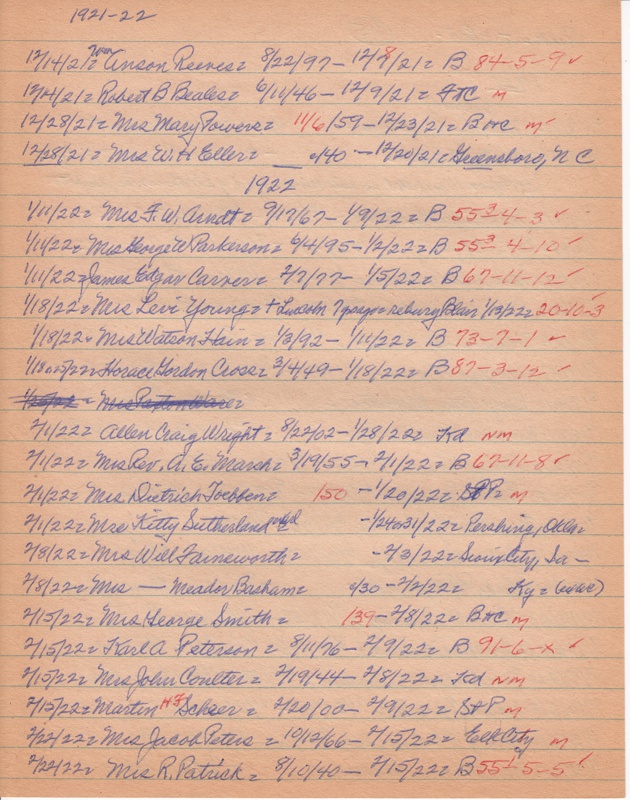 1921-22
12/14/21= Anson Reeves= 8/22/97- 12/8/21= B 84-5-9 ✓
12/14/21= Robert B Beales= 6/11/46-12/9/21= m
12/28/21= Mrs Mary Powers= 11/6/59-12/23/21= B+C m
12/28/21= Mrs W. H Eller= c/40 -12/20/21= Greensboro, N C
1922
1/11/22= Mrs F. W. Arndt= 9/17/67- 1/9/22= B 55 4-3 ✓
1/11/22= Mrs George W Parkerson= 6/4/95-1/2/22= B 55 4-10 ✓
1/11/22= James Edgar Carver= 2/7/77- 1/5/22= B 67-11-12 ✓
1/18/22= Mrs Levi Young= + Lincoln 7 yrs ago= rebury Blair 1/13/22= 20-10-3
1/18/22= Mrs Watson Hain= 1/3/92- 1/11/22= B 73-7-1 ✓
Horace Gordon Cross= 3/4/49-1/18/22= B 87-3-12 ✓
1/25/22 = Mrs Paxton Ware=
2/1/22= Allen Craig Wright= 8/22/02-1/28/22= Kd NM
2/1/22= Mrs Rev. A. E. March= 3/19/55-2/1/22= B 67-11-8 ✓
2/1/22= Mrs Dietrich Toebben= 150 -1/20/22= St P= m
2/1/22= Mrs Kitty Sutherland -1/24or31/22= Pershing, Okla=
2/8/22= Mrs Will Farnsworth= -2/3/22= Sioux City, Ia-
2/8/22= Mrs — Meador Basham= c/30 -2/2/22= Ky=
2/15/22= Mrs George Smith= 139-2/8/22= B+C m
2/15/22= Karl A Peterson= 8/11/76- 2/9/22= B 91-6-x ✓
2/15/22= Mrs John Coulter= 2/19/44- 2/8/22= Kd NM
2/15/22= Martin HF Scheer= 2/20/00- 2/9/22= St P m
2/22/22= Mrs Jacob Peters= 10/12/66-2/15/22= Elk City m
2/22/22= Mrs R. Patrick= 8/10/40- 2/15/22= B 55 5-5 ✓